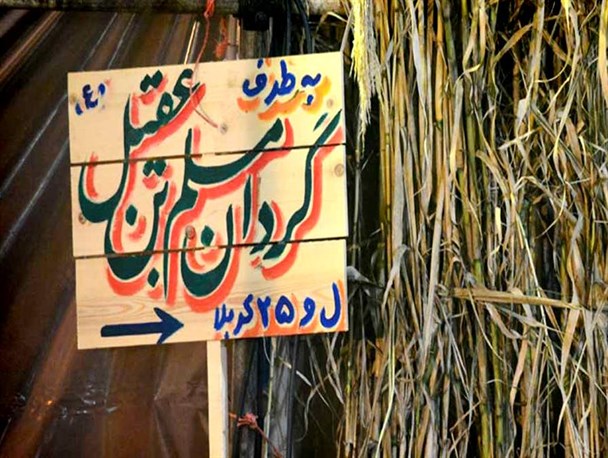 به طرف
گردان مسلم ابن عقیل (ع)
ل و ۲۵ کربلا